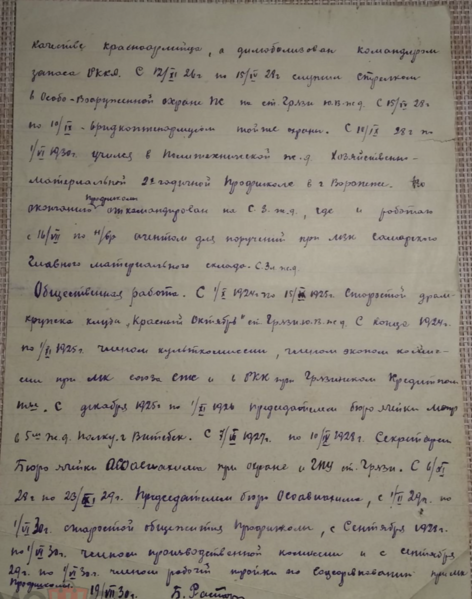 качестве красноармейца, а демобилизован командиром
запаса РККА. С 12/XI 26г по 15/IV 28г служил стрелком
в Особо-Вооруженной охране ПС ж ст Грязи ю.в.ж.д. С 15/IV 28г
по 10/IX - охраны. С 10/IX 28г по
1/VI 1930г. учился в ж.д. Хозяйственно-
материальной 2х годичной Профшколе в г Воронеже. По
окончании Профшколы откомандирован на С.З.ж.д., где и работаю
с 16/VII по агентом для поручений при
Главного материального склада С.З.ж.д.
Общественная работа. С 1/X 1924г. по 15/ 1925г. Старостой драм-
кружка клуба "Красный Октябрь" ст. Грязи ю.в.ж.д. С конца 1924г.
по 1925г членом культкомиссии, членом эконом комис-
сии при МК союза и РКК при Грязинском Кредитном
С декабря 1925г по 1926 председателем бюро ячейки
в 5ом ж.д. полку г Витебск. С 1927г. по 10/IV 1928г. Секретарем
Бюро ячейки при охране и ГПУ ст. Грязи. С 6/XI
28г по 23/ 29г. Председателем бюро Осоавиахима, с 29г. по
1/VI 30г. старостой общежития Профшколы, с Сентября 1928г.
по 1/VI 30г. членом производственной комиссии и с сентября
29г. по 1/VI 30г. членом рабочей тройки по соцсоревнованию при
Профшколе. 19/VII 30г.